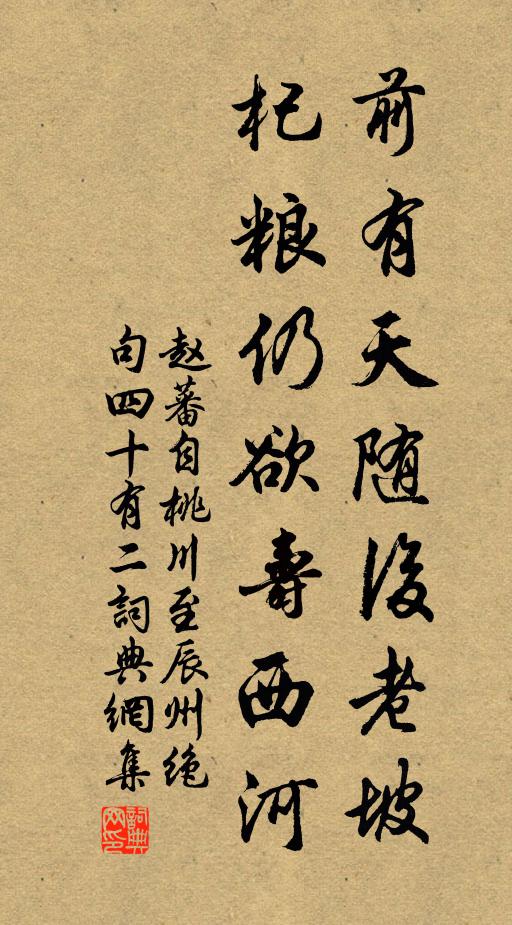 前有天随後老坡
杞粮仍欲壽西河
赵蕃自桃川至辰州绝
句四十有二詞典網集
詞典网印